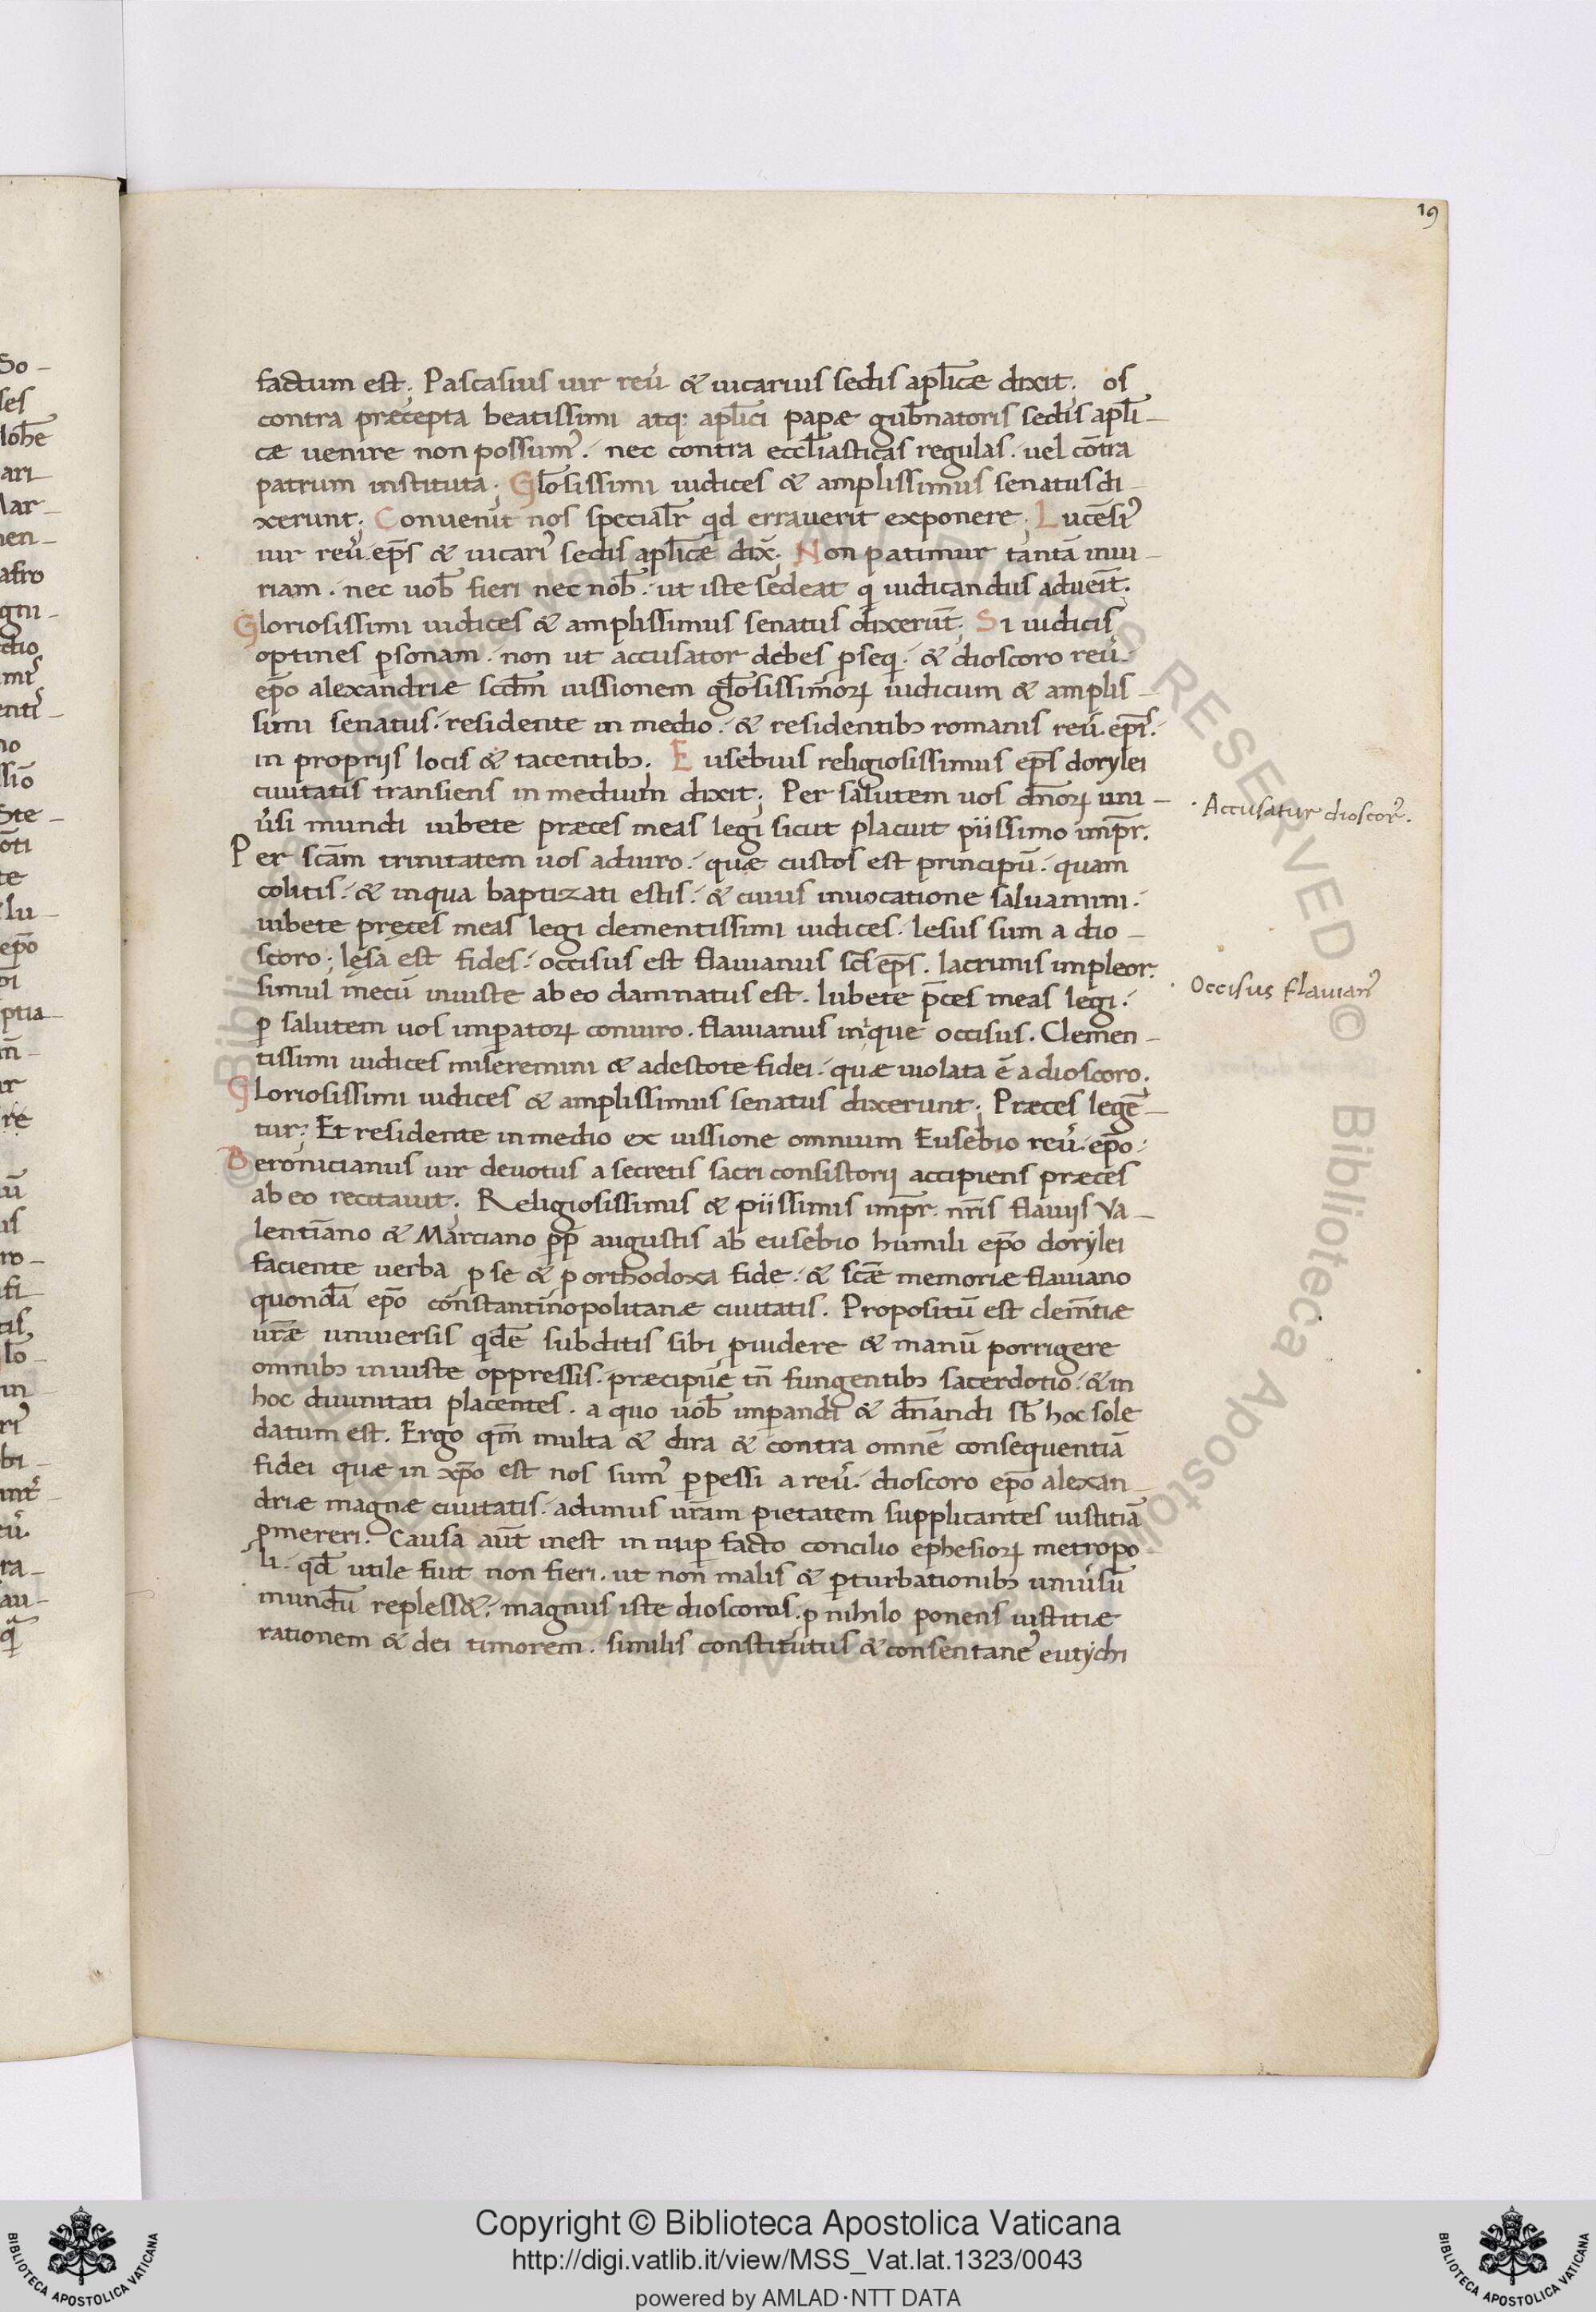 19
factum est. Pascasius uir reu̅ & uicarius sedis apl̅icæ dixit; os
contra præcepta beatissimi atq; apl̅ici papæ gub̅natoris sedis apl̅i-
cæ uenire non possum᾽. nec contra eccl̅iasticas regulas. uel co̅tra
patrum instituta; Gl̅osissimi iudices & amplissimus senatus di-
xerunt; Conuenit nos special̅r qd errauerit exponere; Luce̅si᾽
uir reu̅ ep̅s & uicari᾽ sedis apl̅icæ dix̅; Non patimur tanta̅ iniu-
riam. nec uob̅ fieri nec nob̅. ut iste sedeat q iudicandus adueit̅.
Gloriosissimi iudices & amplissimus senatus dixeru̅t; Si iudicis
optines p̱sonam. non ut accusator debes p̱seq. & dioscoro reu̅.
ep̅o alexandriæ scd̅m iussionem gl̅osissimoꝝ iudicum & amplis-
simi senatus. residente in medio. & residentibꝫ romanis reu̅. ep̅is.
in proprijs locis & tacentibꝫ; Eusebius religiosissimus ep̅s dorylei
ciuitatis transiens in medium dixit; Per salutem uos dn̅oꝝ uni-
u̅si mundi iubete præces meas legi sicut placuit piissimo imp̅r.
Per sc̅am trinitatem uos adiuro. quæ custos est principu̅. quam
colitis. & in qua baptizati estis. & cuius inuocatione saluamini.
iubete pręces meas legi clementissimi iudices. lesus sum a dio-
scoro; lęsa est fides. occisus est flauianus sc̅s ep̅s. lacrimis impleor.
simul mecu̅ iniuste ab eo damnatus est. Iubete p̅ces meas legi.
ꝑ salutem uos imꝑatoꝝ coniuro. flauianus iniq̍ue occisus. Clemen-
tissimi iudices miseremini & adestote fidei. quæ uiolata e̅ a dioscoro.
Gloriosissimi iudices & amplissimus senatus dixerunt; Præces lege̅-
tur; Et residente in medio ex iussione omnium Eusebio reu̅. ep̅o.
Beronicianus uir deuotus a secretis sacri consistorij accipiens præces
ab eo recitauit; Religiosissimis & piissimis imp̅r. nr̅is flauijs Va-
lentiano & Marciano pp̅ augustis ab eusebio humili ep̅o dorylei
faciente uerba ꝓ se & ꝓ orthodoxa fide. & sc̅æ memoriæ flauiano
quonda̅ ep̅o constantinopolitanæ ciuitatis. Propositu̅ est clem̅tiæ
ur̅æ uniuersis qde̅ subditis sibi ꝓuidere & manu̅ porrigere
omnibꝫ iniuste oppressis. præcipue tn̅ fungentibꝫ sacerdotio. & in
hoc diuinitati placentes. a quo uob̅ imꝑandi & dn̅andi sb̅ hoc sole
datum est. Ergo qm̅ multa & dira & contra omne̅ consequentia̅
fidei quæ in xp̅o est nos sum᾽ ꝑpessi a reu̅. dioscoro ep̅o alexan-
driæ magnæ ciuitatis. adimus ur̅am pietatem supplicantes iustitia̅
ꝓmereri. Causa aut̅ inest in nuꝑ facto concilio ephesioꝝ metropo-
li. qd̅ utile fuit non fieri. ut non malis & ꝑturbationibꝫ uniu̅su̅
mundu̅ repless&. magnus iste dioscorus. ꝓ nihilo ponens iustitiæ
rationem & dei timorem. similis constitutus & consentane᾽ eutychi
Accusatur dioscor᾽.
Occisus flauian᾽
Copyright © Biblioteca Apostolica Vaticana
http://digi.vatlib.it/view/MSS_Vat.lat.1323/0043
powered by AMLAD·NTT DATA
BIBLIOTECA APOSTOLICA VATICANA
BIBLIOTECA APOSTOLICA VATICANA